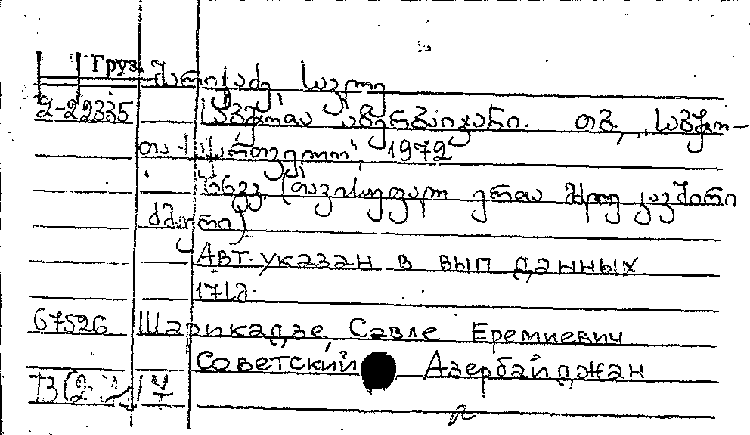 Груз. შარიქაძე სავლე
2-22335 საბჭოთა აზერბაიჯანი. თბ., „საბჭო-
თა საქართველო“, 1972
(თავისუფალ ერთა კავშირი
ძმური)
Авт. указан в вып данных
171г.
67526 Шарикадзе, Савле Еремиевич
Советский Азербайджан